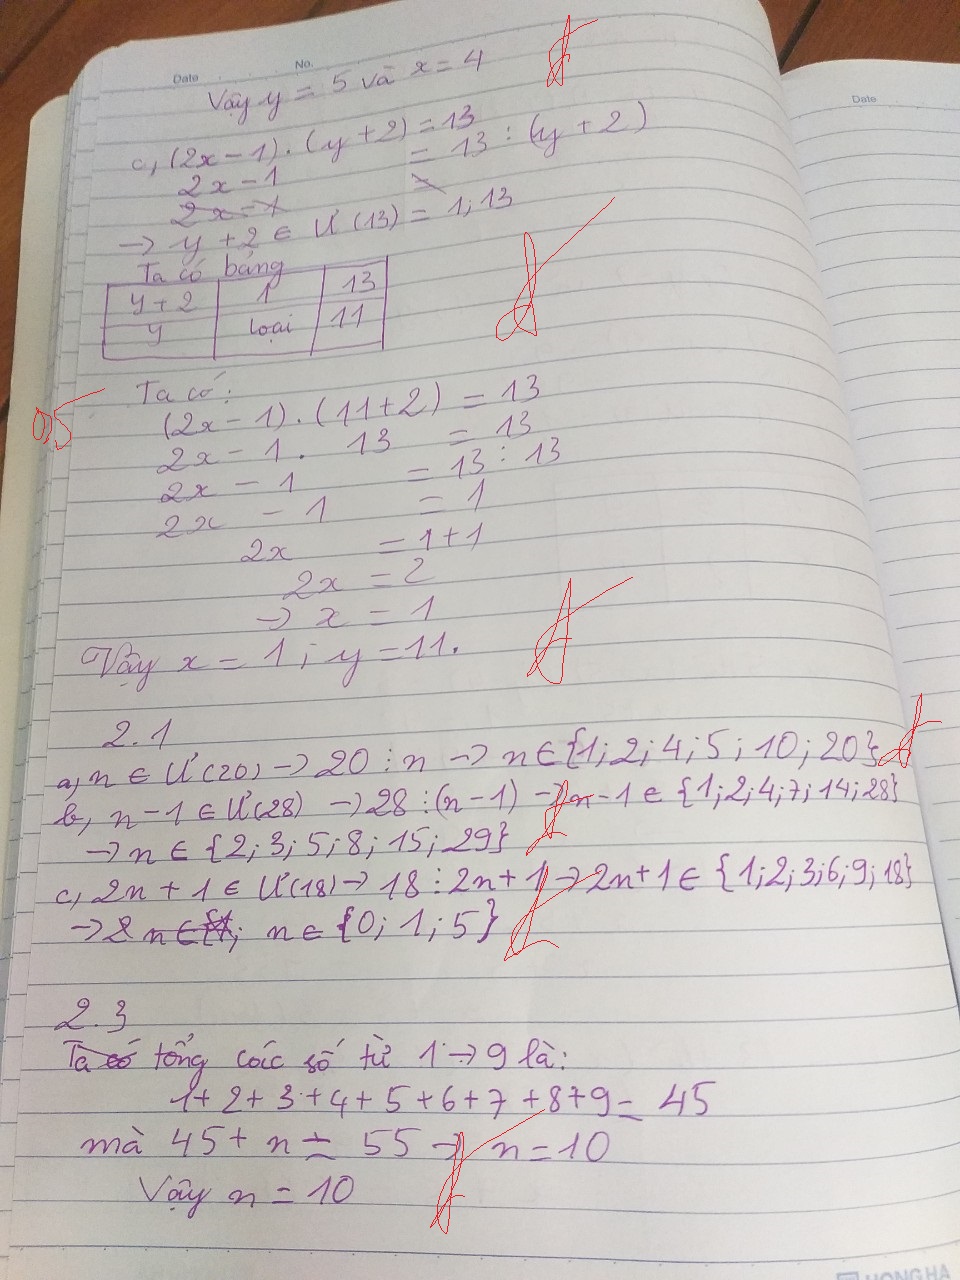 Date No.
Vậy y = 5 và x = 4
c, (2x - 1) . (y + 2) = 13
2x - 1 = 13 : (y + 2)
2x - 1
→ y + 2 ∈ Ư(13) = 1; 13
Ta có bảng
y + 2 1 13
y loại 11
0,5
Ta có:
(2x - 1) . (11 + 2) = 13
2x - 1 . 13 = 13
2x - 1 = 13 : 13
2x - 1 = 1
2x = 1 + 1
2x = 2
→ x = 1
Vậy x = 1; y = 11.
2.1
a, n ∈ Ư(20) → 20 ⋮ n → n ∈ {1; 2; 4; 5; 10; 20}
b, n - 1 ∈ Ư(28) → 28 ⋮ (n - 1) → n - 1 ∈ {1; 2; 4; 7; 14; 28}
→ n ∈ {2; 3; 5; 8; 15; 29}
c, 2n + 1 ∈ Ư(18) → 18 ⋮ 2n + 1 → 2n + 1 ∈ {1; 2; 3; 6; 9; 18}
→ 2n ∈ {1; n ∈ {0; 1; 5}
2.3
Ta có tổng các số từ 1 → 9 là:
1 + 2 + 3 + 4 + 5 + 6 + 7 + 8 + 9 = 45
mà 45 + n = 55 → n = 10
Vậy n = 10
Date
HONG HA